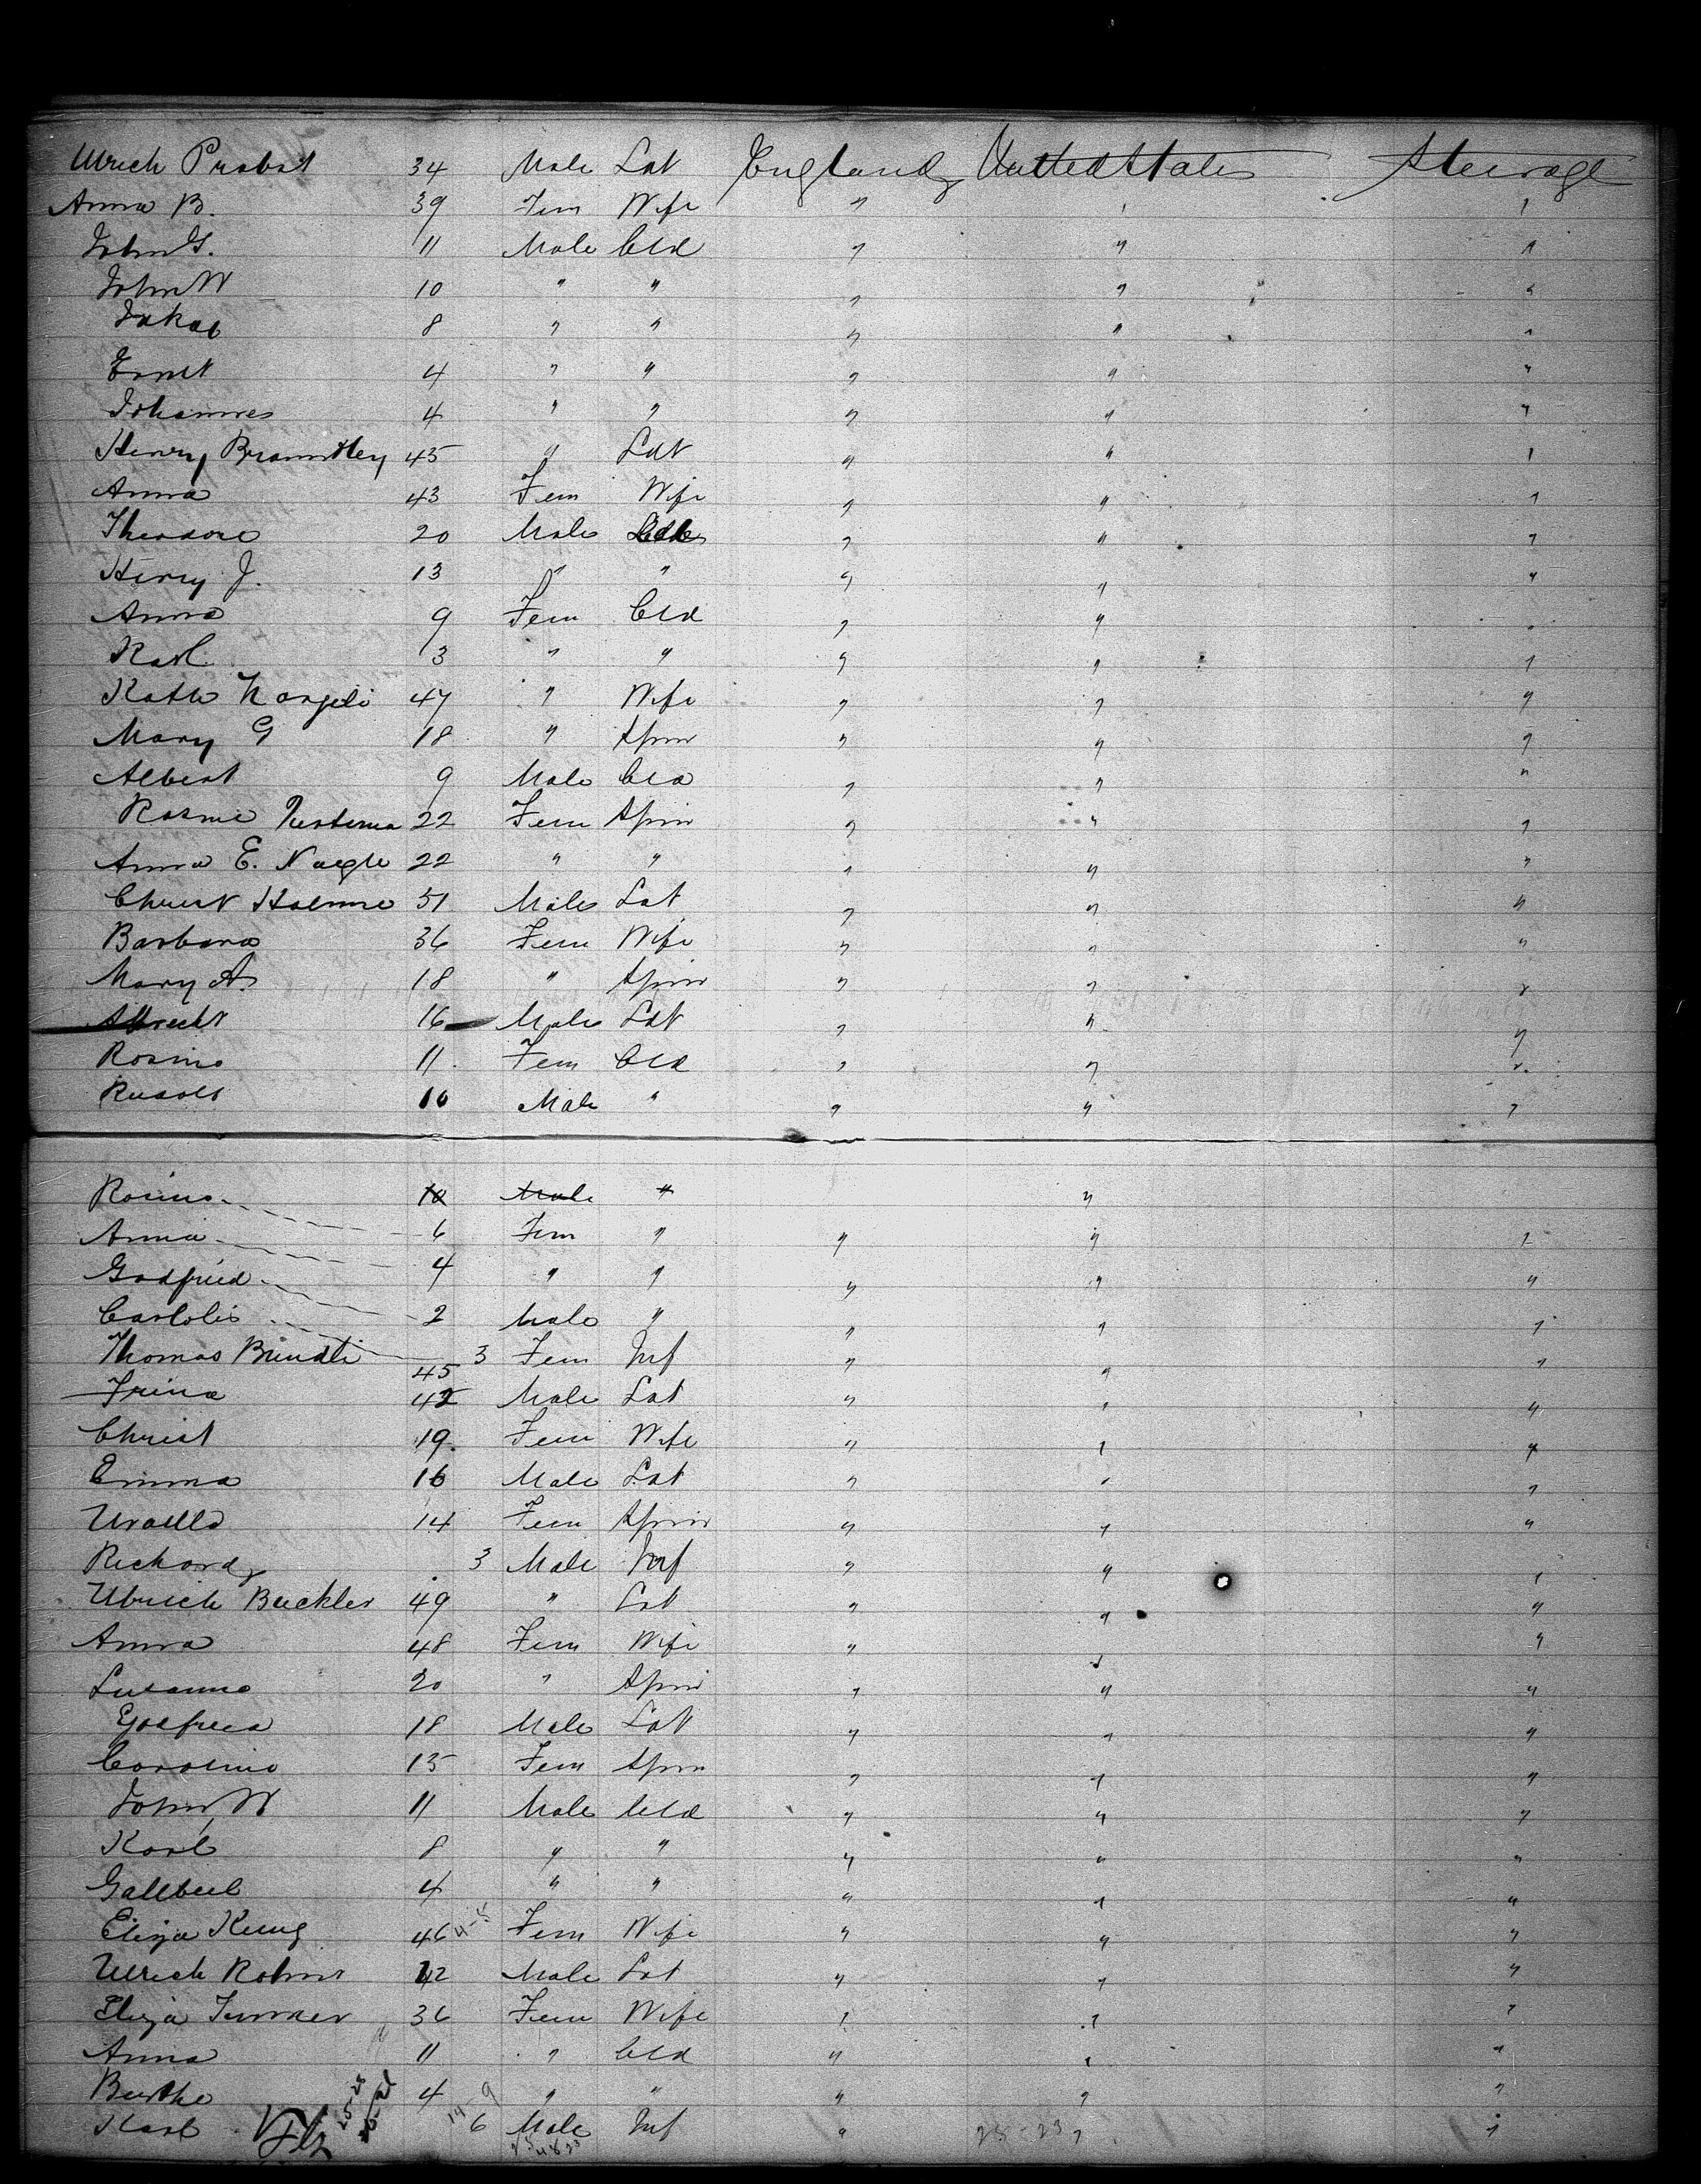 Ulrich Probst 34 Male Lab England United States Steerage
Anna B. 39 Fem Wife " " "
John G. 11 Male Cld " " "
John W 10 " " " " "
Jakob 8 " " " " "
Ernst 4 " " " " "
Johannes 4 " " " " "
Henry 45 " Lab " " "
Anna 43 Fem Wife " " "
Theodore 20 Male " " "
Henry J. 13 " " " " "
Anna 9 Fem Cld " " "
Karl 3 " " " " "
Kath 47 " Wife " " "
Mary G 18 " Spin " " "
Albert 9 Male Cld " " "
22 Fem Spin " " "
Anna E. Naegle 22 " " " " "
Christ 51 Male Lab " " "
Barbara 36 Fem Wife " " "
Mary A. 18 " Spin " " "
Albrecht 16 Male Lab " " "
Rosina 11 Fem Cld " " "
Rudolf 10 Male " " " "
Rosina 10 Male " "
Anna 6 Fem " " " "
Godfried 4 " " " " "
2 Male " " " "
Thomas 45 3 Fem Inf " " "
42 Male Lab " " "
Christ 19 Fem Wife " " "
Emma 16 Male Lab " " "
14 Fem Spin " " "
Richard 3 Male Inf " " "
Ulrich Buckler 49 " Lab " " "
Anna 48 Fem Wife " " "
Susanna 20 " Spin " " "
Godfried 18 Male Lab " " "
Carolina 15 Fem Spin " " "
John W 11 Male Cld " " "
Karl 8 " " " " "
4 " " " " "
Eliza Kung 46 Fem Wife " " "
Ulrich Male Lab " " "
Eliza 36 Fem Wife " " "
Anna 11 " Cld " " "
Bertha 4 " " " " "
Karl 6 Male Inf " 28-23 " "